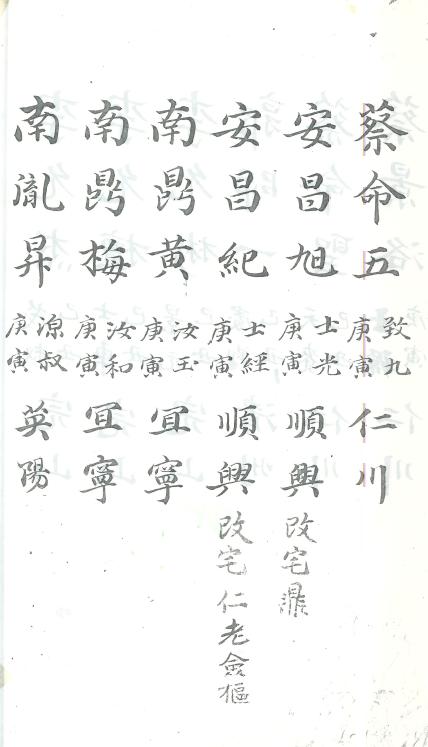 蔡命五 致九 庚寅 仁川
安昌旭 士光 庚寅 順興 改宅鼎
安昌紀 士經 庚寅 順興 改宅仁 老僉樞
南鼎黄 汝玉 庚寅 宜寧
南鼎梅 汝和 庚寅 宜寧
南胤昇 源叔 庚寅 英陽